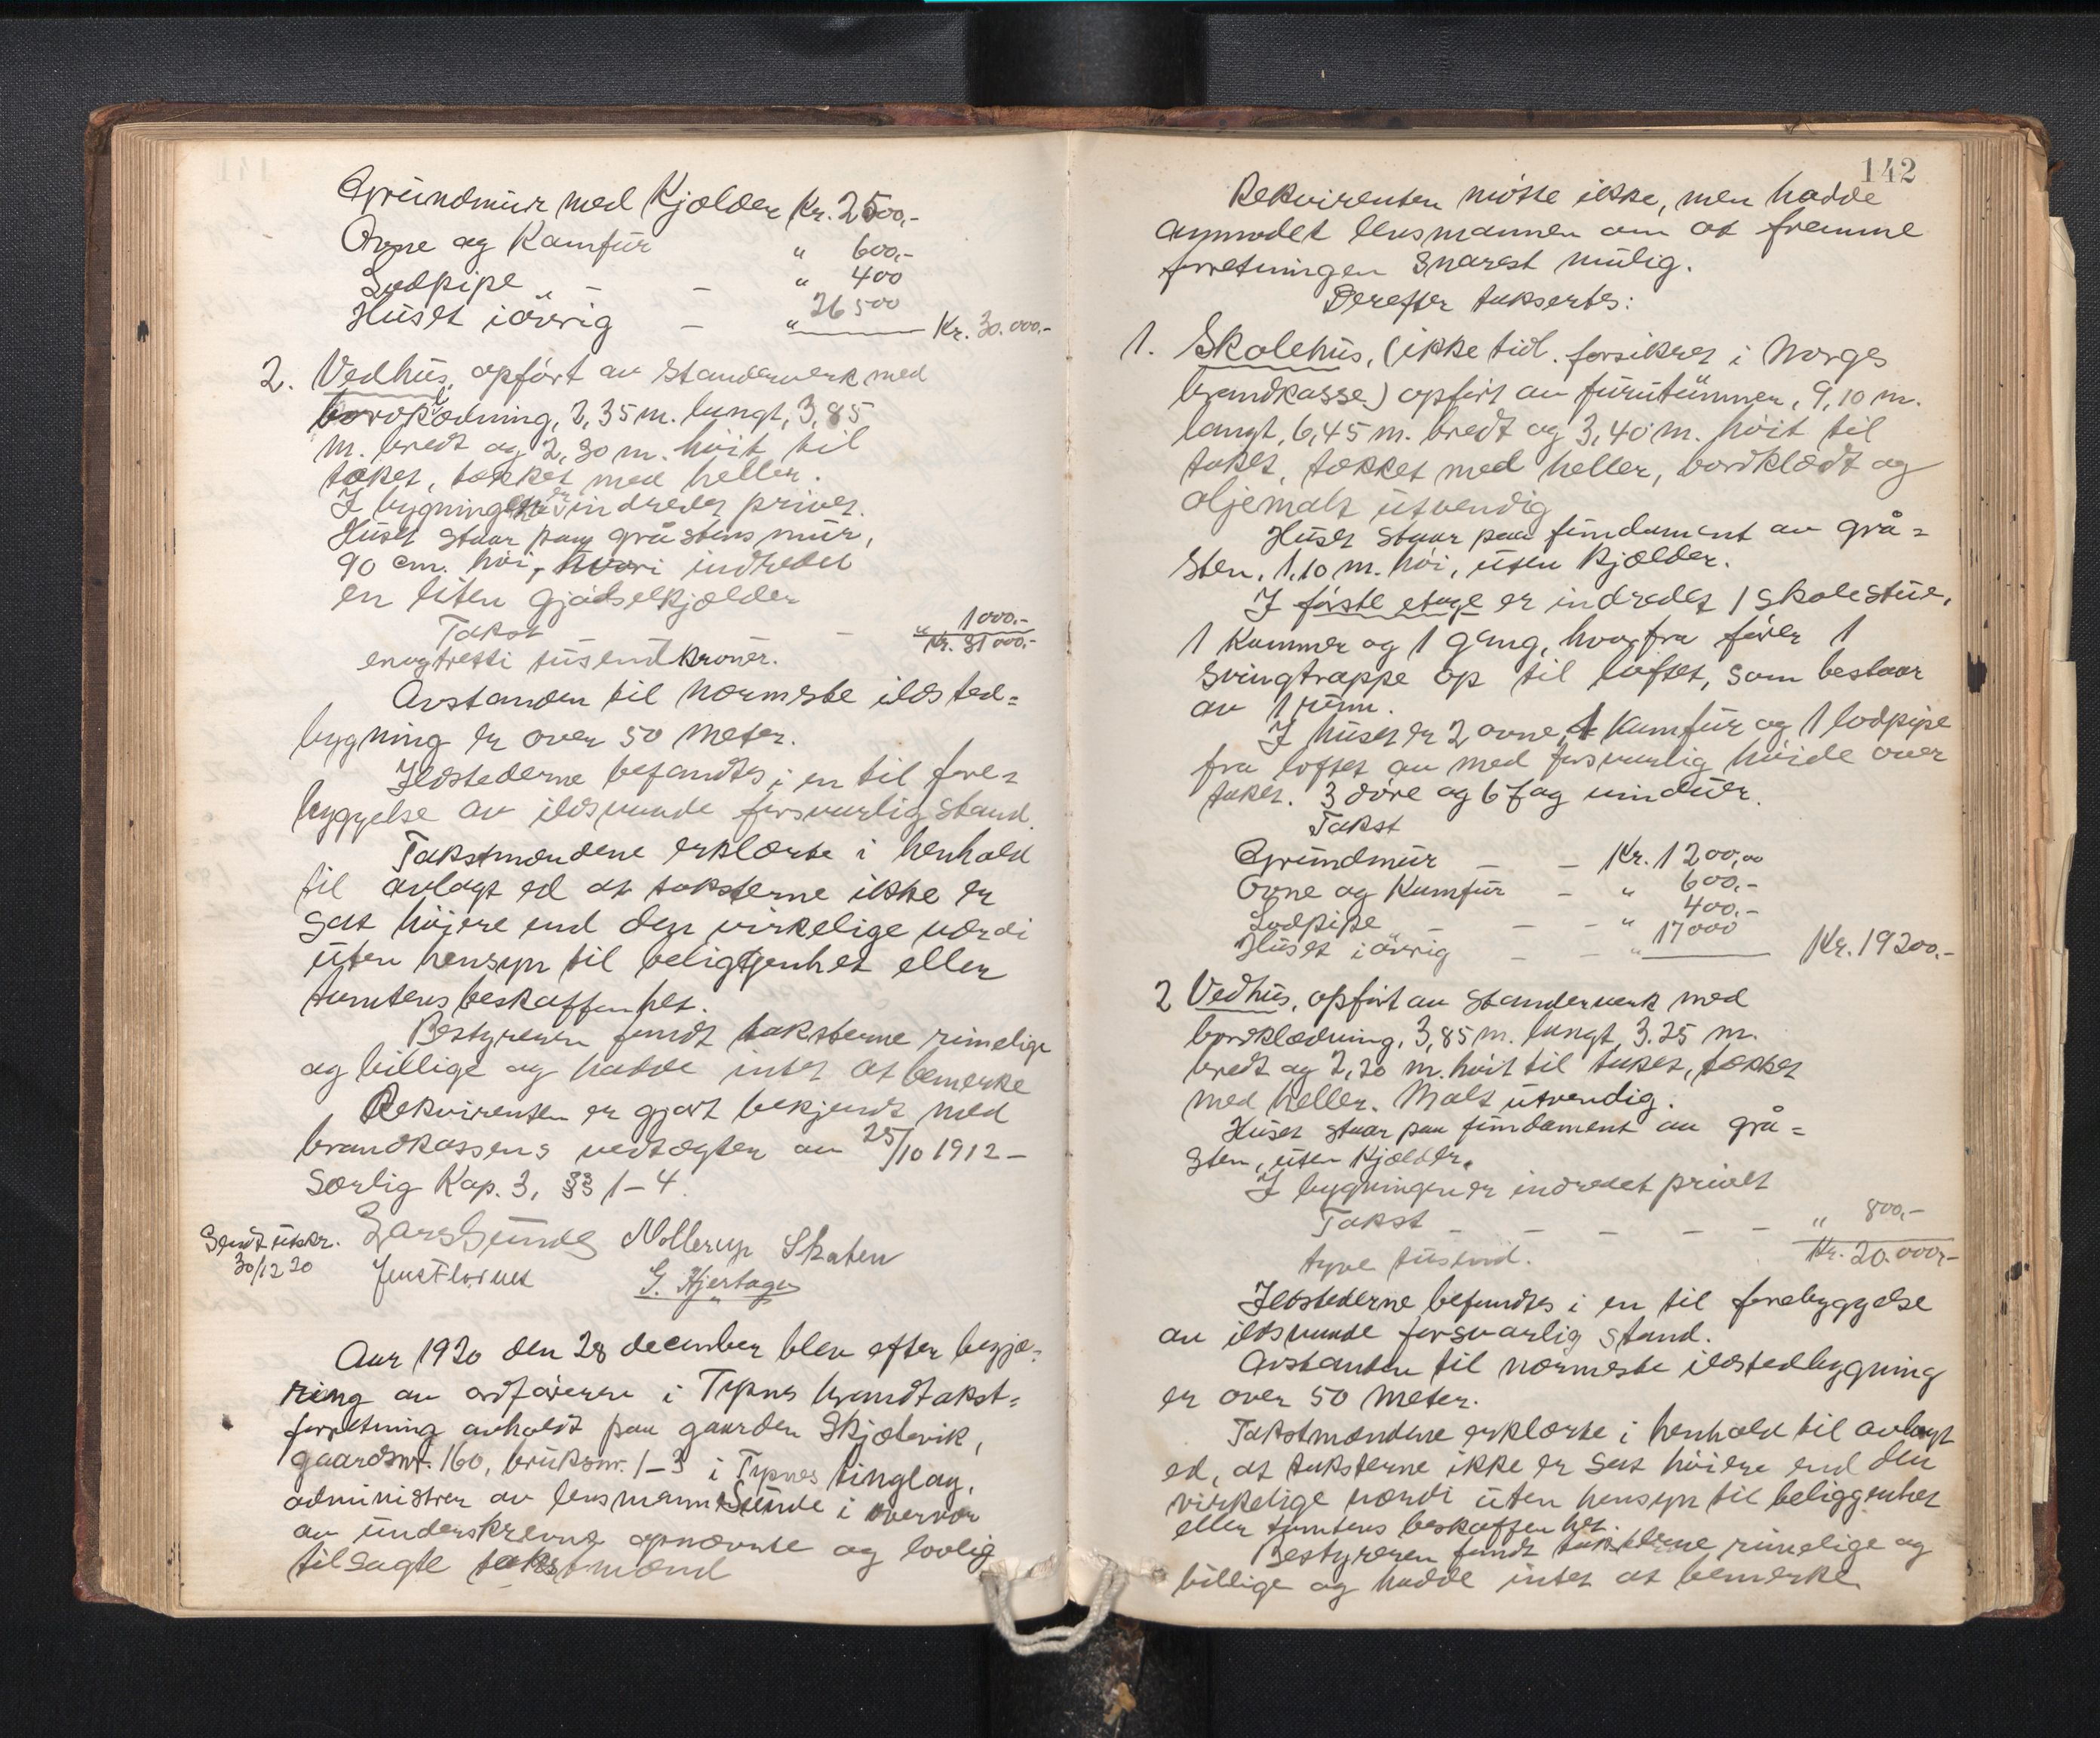 Grundmur med Kjælder Kr. 2500,-
Ovne og Kamfur " 600,-
Lodpipe - - " 400
Huset iövrig - " 26500 Kr. 30.000,-
2. Vedhus, opfört av standerverk med
bordklædning, 3,35 m. langt, 3,85
m. bredt og 2,30 m. höit til
taket, tækket med heller.
I bygningen er indredet privet.
Huset staar paa gråstens mur,
90 cm. höi, hvori indredet
en liten gjödselkjælder
Takst - " 1000,-
enogtretti tusend kroner. Kr. 31000,-
Avstanden til nærmeste ildsted=
bygning er over 50 meter.
Ildstederne befandtes i en til fore=
byggelse av ildsvaade forsvarlig stand.
Takstmændene erklærte i henhold
til avlagt ed at taksterne ikke er
sat höjere end den virkelige værdi
uten hensyn til beliggenhet eller
tomtens beskaffenhet.
Bestyreren fandt taksterne rimelige
og billige og hadde intet at bemerke
Rekvirenten er gjort bekjendt med
brandkassens vedtægter av 25/10 1912 -
særlig Kap. 3, §§ 1-4.
Sendt utskr. Lars Sunde Nollerup Skaten
30/12 20 G. Hjertager
Aar 1920 den 28 december blev efter begjæ=
ring av ordföreren i Tysnes brandtakst=
forretning avholdt paa gaarden Skjelevik,
gaardsnr. 160, bruksnr. 1-3 i Tysnes tinglag,
administrer av lensmann Sunde i overvær
av underskrevne opnævnte og lovlig
tilsagte takstmænd
142
Rekvirenten mötte ikke, men hadde
anmodet lensmannen om at fremme
forretningen snarest mulig.
Derefter taksertes:
1. Skolehus, (ikke tid. forsikret i Norges
brandkasse) opfört av furutömmer, 9,10 m.
langt, 6,45 m. bredt og 3,40 m. höit til
taket, tækket med heller, bordklædt og
oljemalt utvendig
Huset staar paa fundament av grå=
sten, 1,10 m. höi, uten Kjælder.
I förste etage er indredet 1 skolestue,
1 Kammer og 1 gang, hvorfra förer 1
svingtrappe op til loftet, som bestaar
av 1 rum.
I huset er 2 ovne, 1 Kamfur og 1 lodpipe
fra loftet av med forsvarlig höide over
taket. 3 döre og 6 fag vinduer.
Takst
Grundmur - - Kr. 1200,00
Ovne og Kamfur - " 600,-
Lodpipe - - - " 400,-
Huset iövrig - - " 17000 Kr. 19200,-
2 Vedhus, opfört av standerverk med
bordklædning, 3,85 m. langt, 3.25 m.
bredt og 2,20 m. höit til taket, tækket
med heller. Malt utvendig.
Huset staar paa fundament av grå=
sten, uten Kjælder.
I bygningen er indredet privet
Takst - - - - - " 800,-
tyve tusend. Kr. 20.000,-
Ildstederne befandtes i en til forebyggelse
av ildsvaade forsvarlig stand.
Avstanden til nærmeste ildstedbygning
er over 50 meter.
Takstmændene erklærte i henhold til avlagt
ed, at taksterne ikke er sat höiere end den
virkelige værdi uten hensyn til beliggenhet
eller tomtens beskaffenhet.
Bestyreren fandt taksterne rimelige og
billige og hadde intet at bemerke